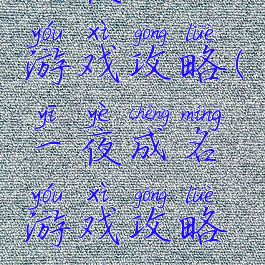 yóu xì gōng lüè
游戏攻略(
yī yè chéng míng
一夜成名
yóu xì gōng lüè
游戏攻略